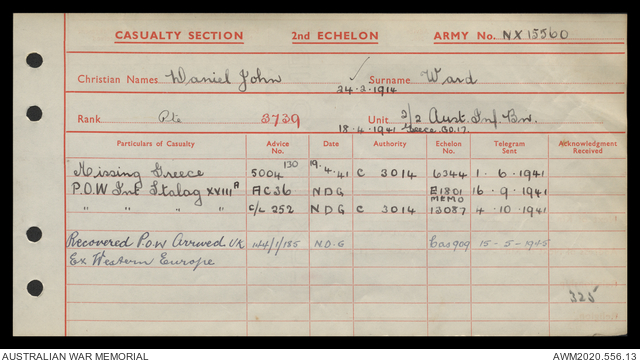 CASUALTY SECTION 2nd ECHELON ARMY No. NX15560
Christian Names Daniel John ✓ Surname Ward
24-2-1914
Rank Pte 3739 Unit 2/2 Aust. Inf. Bn.
18-4-1941 Greece
Particulars of Casualty Advice No. Date Authority Echelon No. Telegram Sent Acknowledgment Received
Missing Greece 5004 130 19.4.41 C 3014 6344 1-6-1941
P.O.W Int Stalag XVIIIA AC36 NDG E1801 16-9-1941
MEMO
" " " " C/L 252 NDG C 3014 13087 4-10-1941
Recovered P.O.W Arrived UK 144/1/185 N.D.G Cas909 15-5-1945
Ex Western Europe
325
AUSTRALIAN WAR MEMORIAL AWM2020.556.13